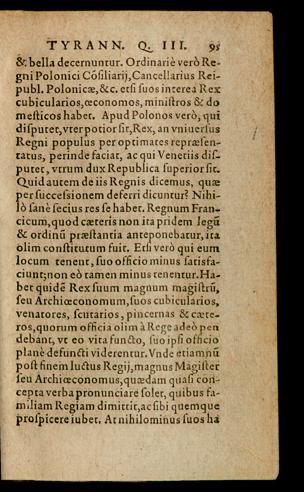 TYRANN. Q. III. 95
& bella decernuntur. Ordinariè verò Re-
gni Polonici Cõsiliarij, Cancellarius Rei-
publ. Polonicæ, &c. etsi suos interea Rex
cubicularios, œconomos, ministros & do
mesticos habet. Apud Polonos verò, qui
disputet, vter potior sit, Rex, an vniuersus
Regni populus per optimates repræsen-
tatus, perinde faciat, ac qui Venetiis dis-
putet, vtrum dux Republica superior sit.
Quid autem de iis Regnis dicemus, quæ
per successionem deferri dicuntur? Nihi-
lò sanè secius res se habet. Regnum Fran-
cicum, quod cæteris non ita pridem Legũ
& ordinũ præstantia anteponebatur, ita
olim constitutum fuit. Etsi verò qui eum
locum tenent, suo officio minus satisfa-
ciunt; non eò tamen minus tenentur. Ha-
bet quidẽ Rex suum magnum magistrũ,
seu Archiœconomum, suos cubicularios,
venatores, scutarios, pincernas & cæte-
ros, quorum officia olim à Rege adeò pen
debant, vt eo vita functo, suo ipsi officio
planè defuncti viderentur. Vnde etiamnũ
post finem luctus Regij, magnus Magister
seu Archiœconomus, quædam quasi con-
cepta verba pronunciare solet, quibus fa-
miliam Regiam dimittit, ac sibi quemque
prospicere iubet. At nihilominus suos ha